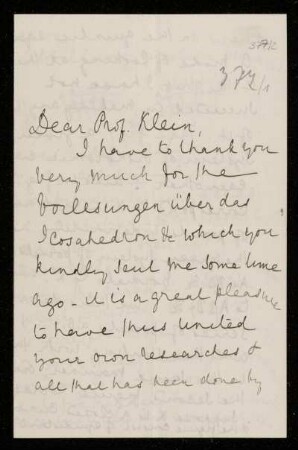 Dear Prof. Klein,
I have to thank you
very much for the
Vorlesungen über das
Icosahedron &c which you
kindly sent me some time
ago - it is a great pleasure
to have thus united
your own researches &
all that has been done by